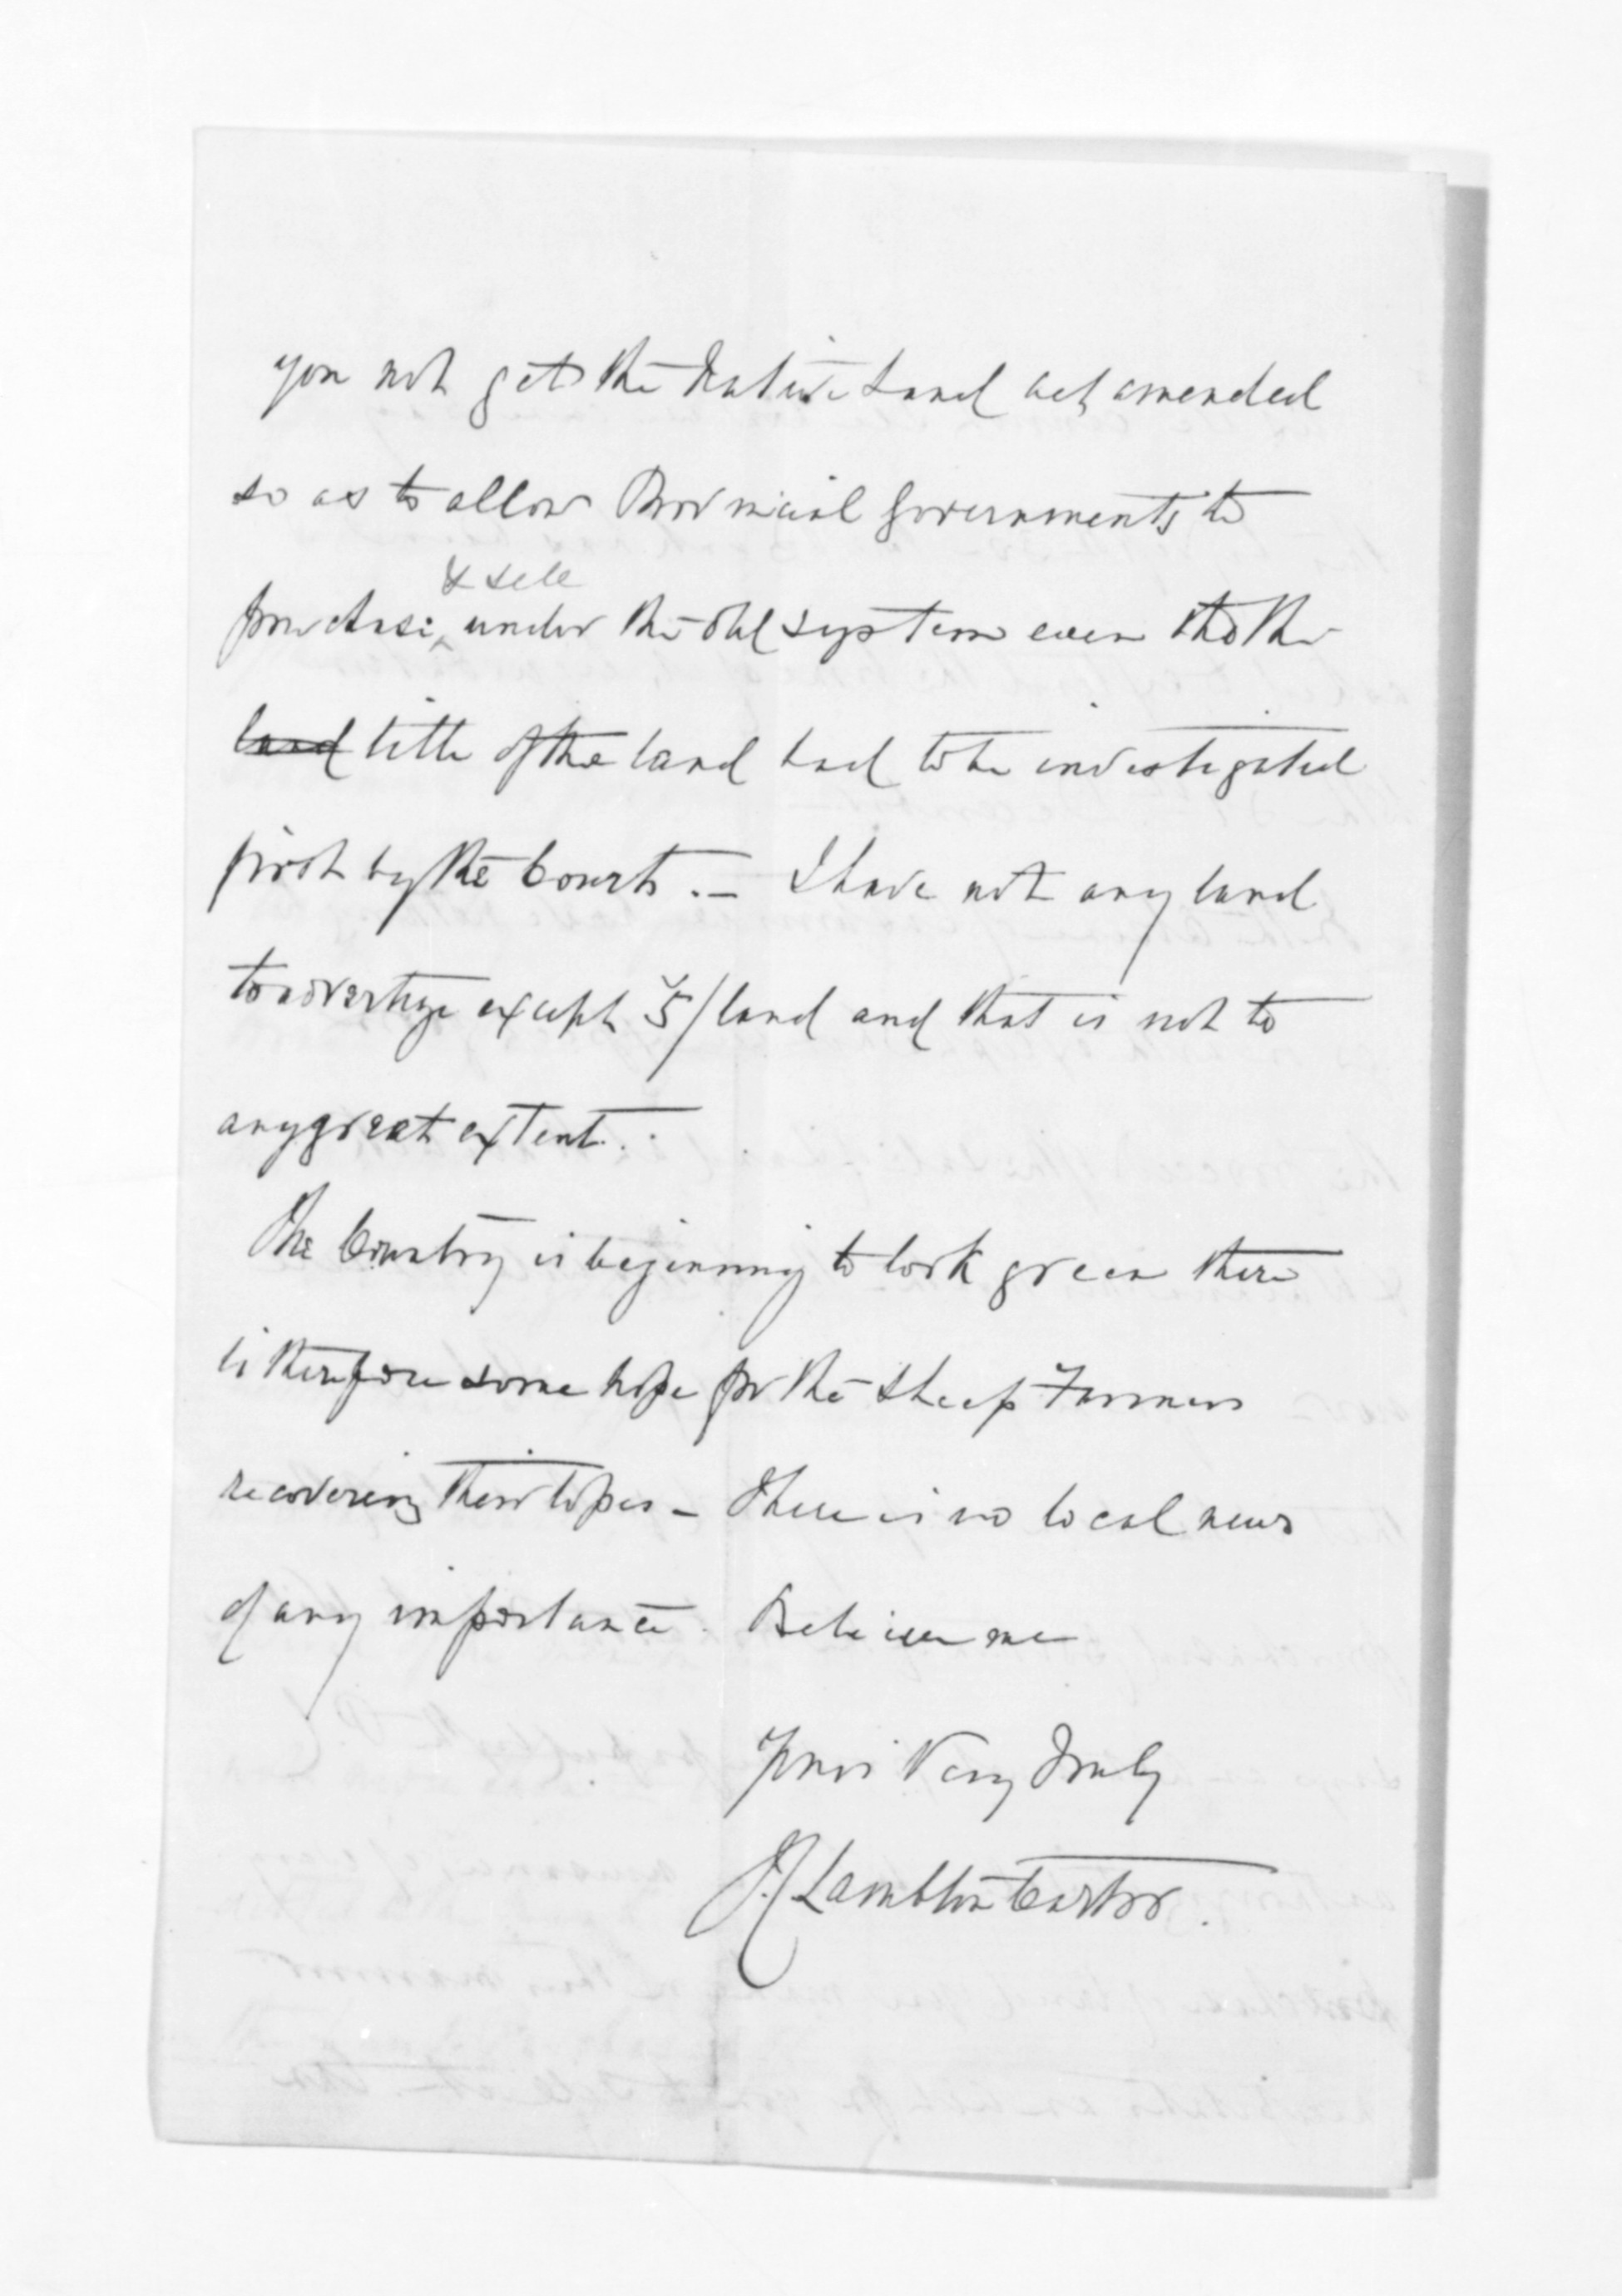 you not get the Native Land act amended
so as to allow Provincial Governments to
& sell
purchase ^ under the old system even tho the
land title of the land had to be investigated
first by the Courts. – I have not any land
to advertize except 5/ land and that is not to
any great extent.
The Country is beginning to look green there
is therefore some hope for the Sheep Farmers
recovering their losses – There is no local news
of any importance. Believe me
Yours Very Truly
J Lambton Carter.